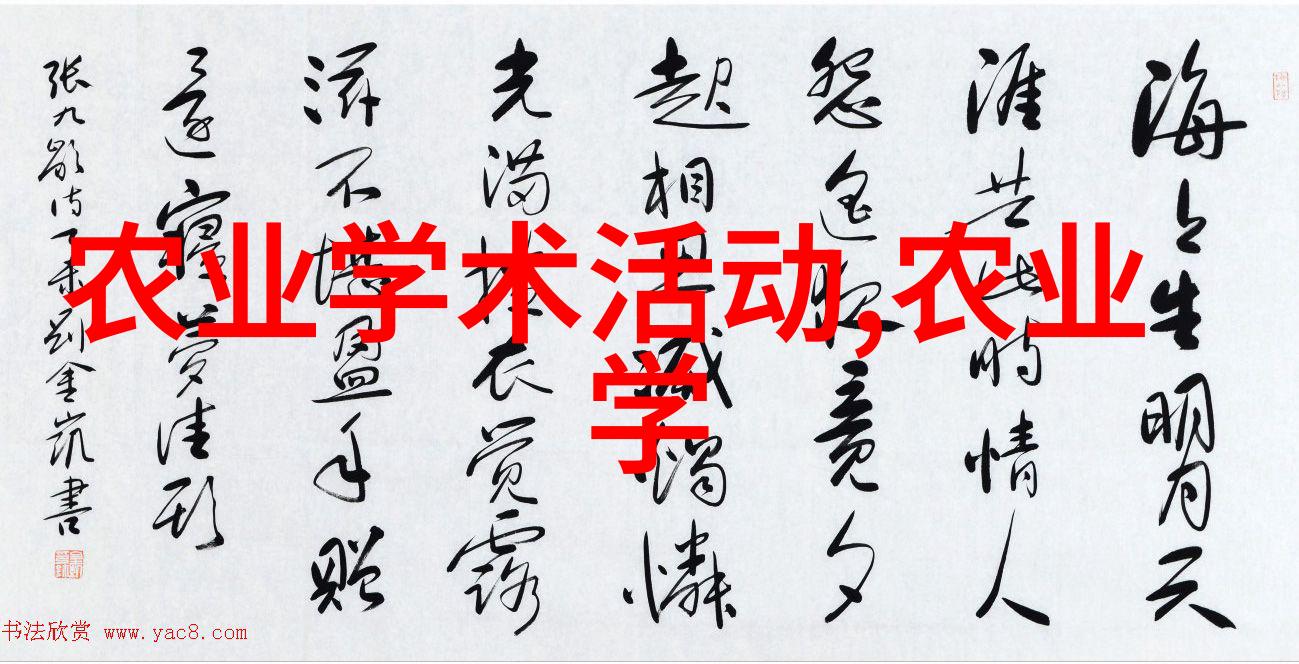 农业学术活动,农业
学
海上生明月天
涯共此时情人
怨遥夜竟夕
起相思灭烛怜
光满披衣觉露
滋不堪盈手赠
还寝梦佳期
张九龄诗 刘金凯书
书法欣赏 www.yac8.com